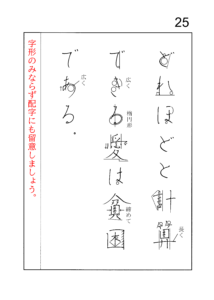 25
どれほどと計算
長く
できる愛は貧困
広く
楕円形
締めて
である。
広く
字形のみならず配字にも留意しましょう。